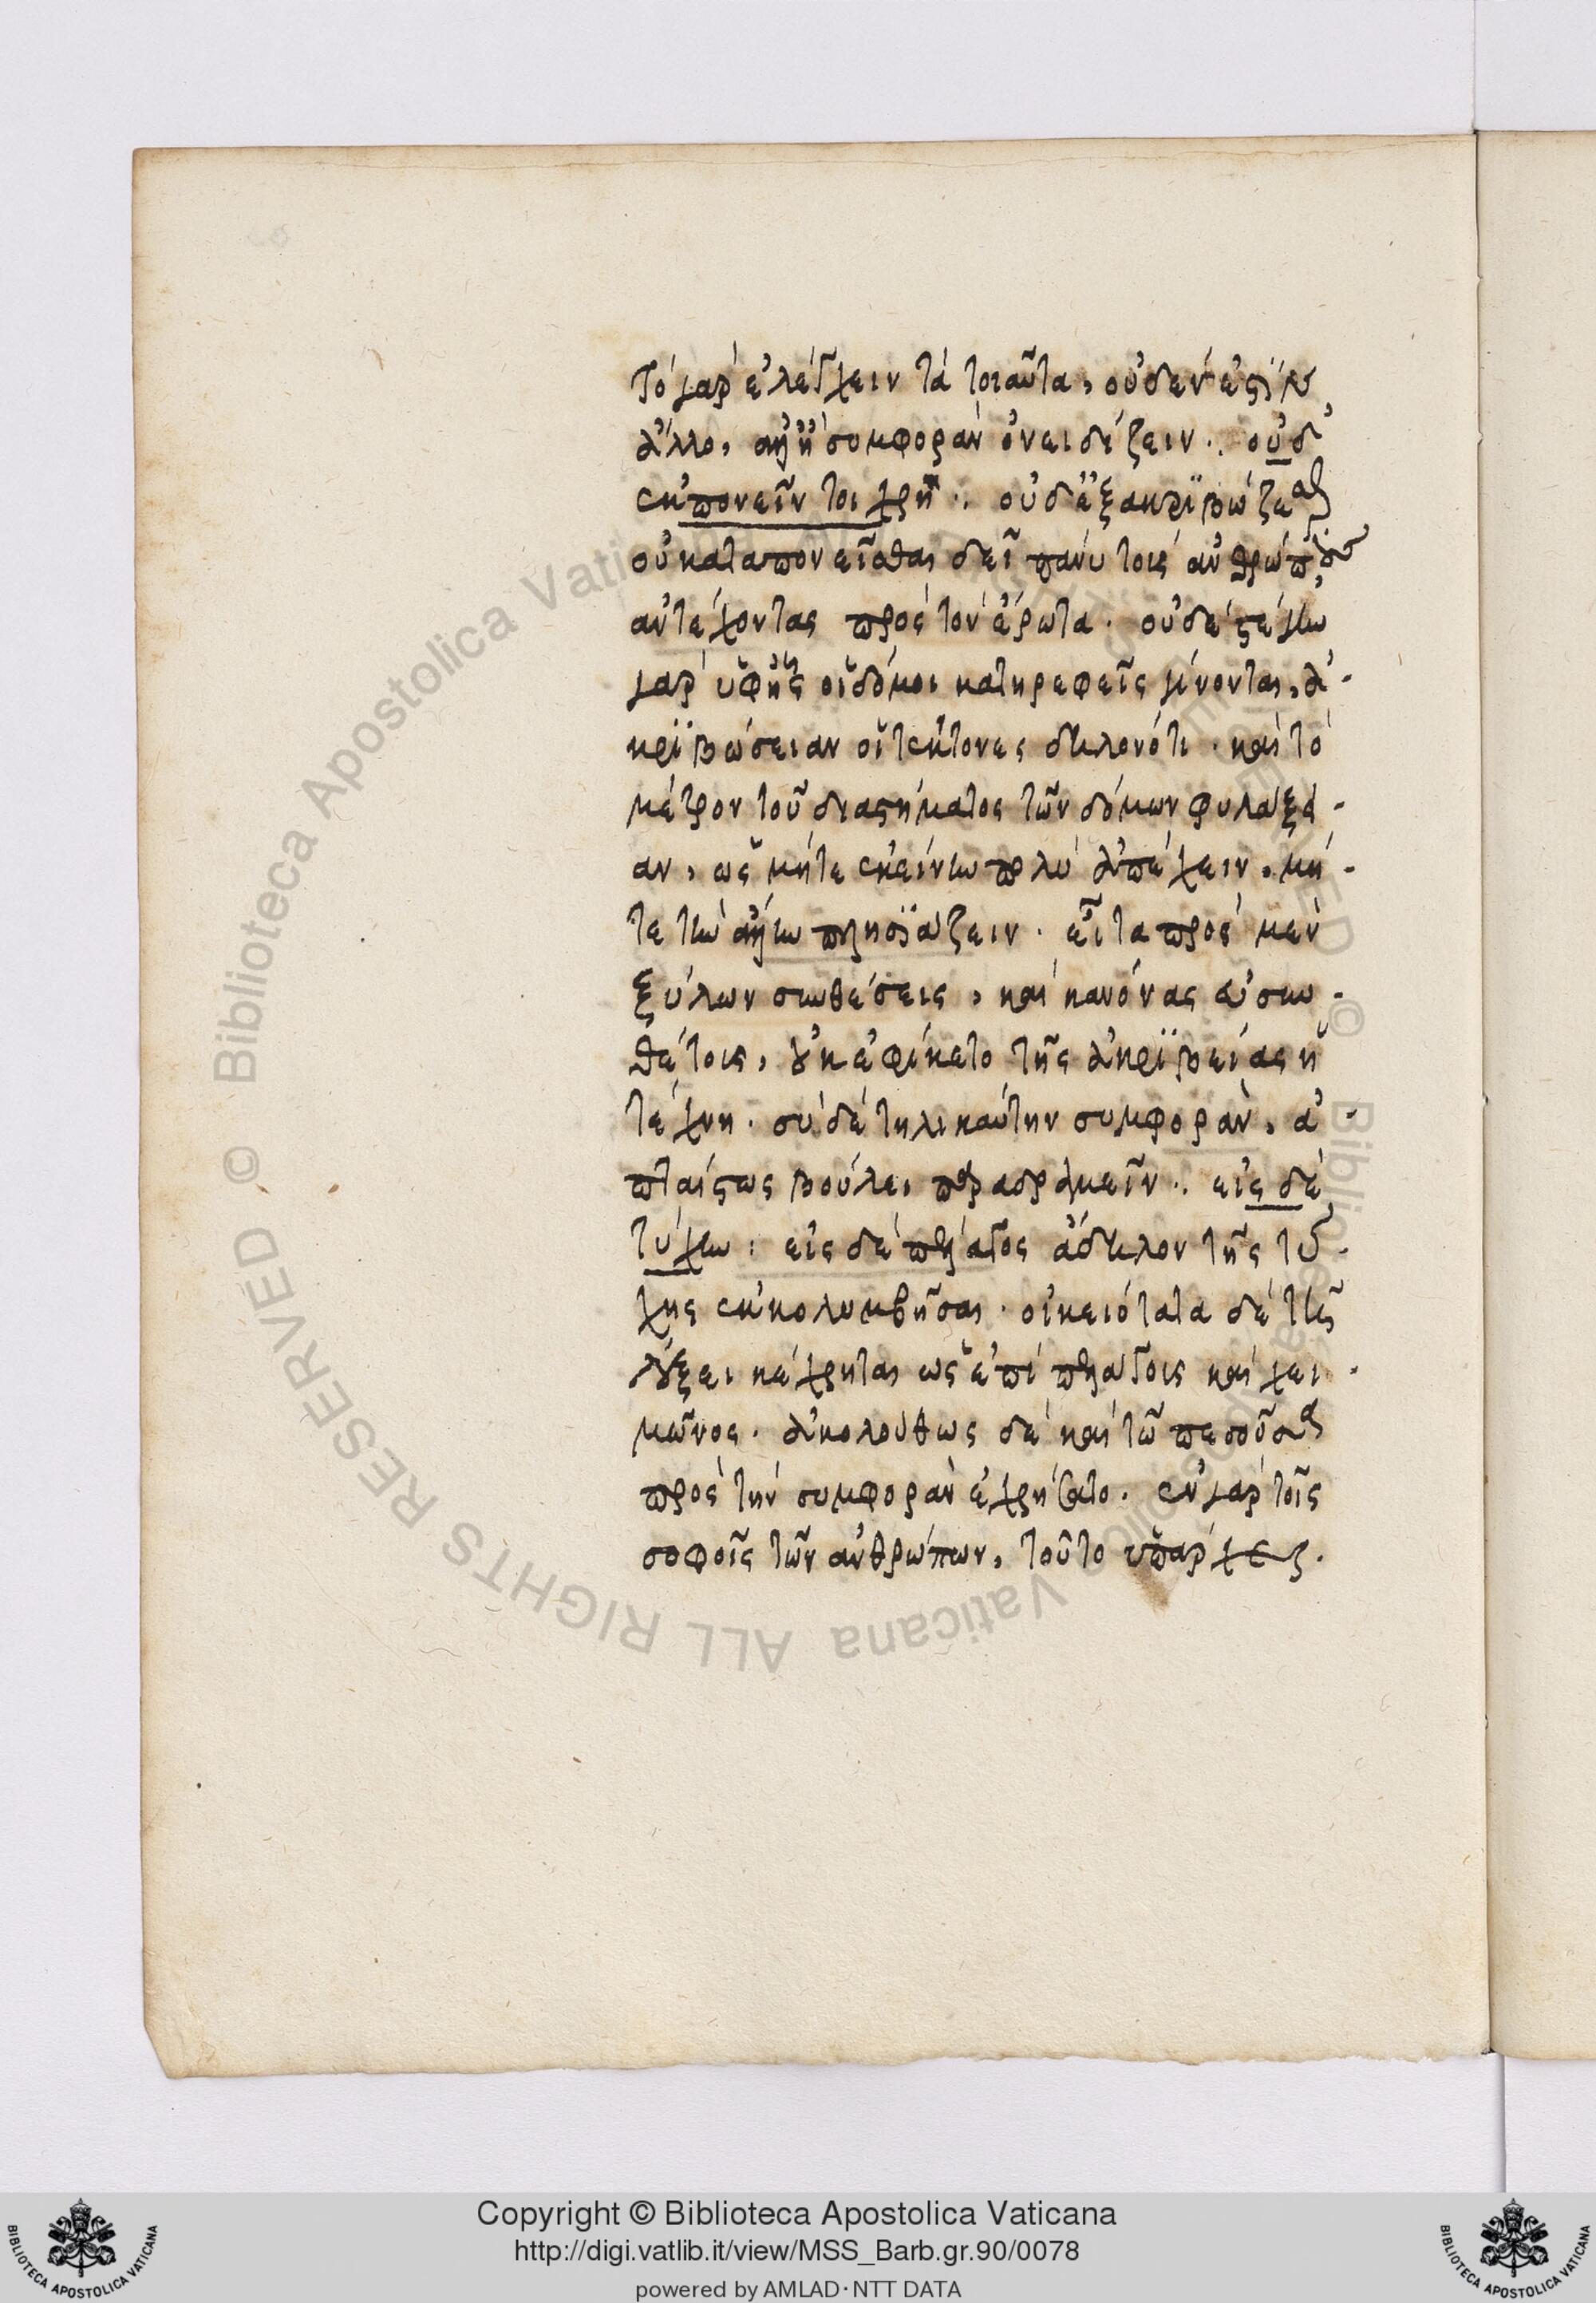 τὸ γὰρ ἐλέγχειν τὰ τοιαῦτα, οὐδέν ἐστιν
ἄλλο, ἀλλ' ἢ συμφορὰν ὀνειδίζειν. οὐδ'
ἐκπονεῖν τοι χρὴ: οὐδ' ἐξακριβάζεσθαι
οὐ καταπονεῖσθαι δεῖ πάνυ τοὺς ἀνθρώπους
ἀντέχοντας πρὸς τὸν ἔρωτα. οὐδὲ στέγην
γὰρ ὑφ' ἧς οἱ δόμοι κατηρεφεῖς γίνονται, ἀ-
κριβώσειαν οἱ τέκτονες δηλονότι. καὶ τὸ
μέτρον τοῦ διαστήματος τῶν δόμων φυλάξει-
αν, ὡς μήτε ἐκείνω πολὺ ἀπέχειν, μή-
τε τὴν ἄλλην πλησιάζειν. εἶτα πρὸς μὲν
ξύλων συνθέσεις, καὶ κανόνας εὐσυν-
θέτους, οὐκ ἐφίκετο τῆς ἀκριβείας ἡ
τέχνη. σὺ δὲ τηλικαύτην συμφορὰν, ἀ-
πταίστως βούλει παραδραμεῖν. εἰς δὲ
τύχην: εἰς δὲ πέλαγος ἄδηλον τῆς τύ-
χης ἐκκολυμβῆσαι. οἰκειότατα δὲ τῇ
λέξει κέχρηται ὡς ἐπὶ πελάγους καὶ χει-
μῶνος. ἀκολούθως δὲ καὶ τῶ πεσοῦσα
πρὸς τὴν συμφορὰν ἐχρήσατο. ἐν γὰρ τοῖς
σοφοῖς τῶν ἀνθρώπων, τοῦτο ὑπάρχει.
Copyright © Biblioteca Apostolica Vaticana
http://digi.vatlib.it/view/MSS_Barb.gr.90/0078
powered by AMLAD·NTT DATA